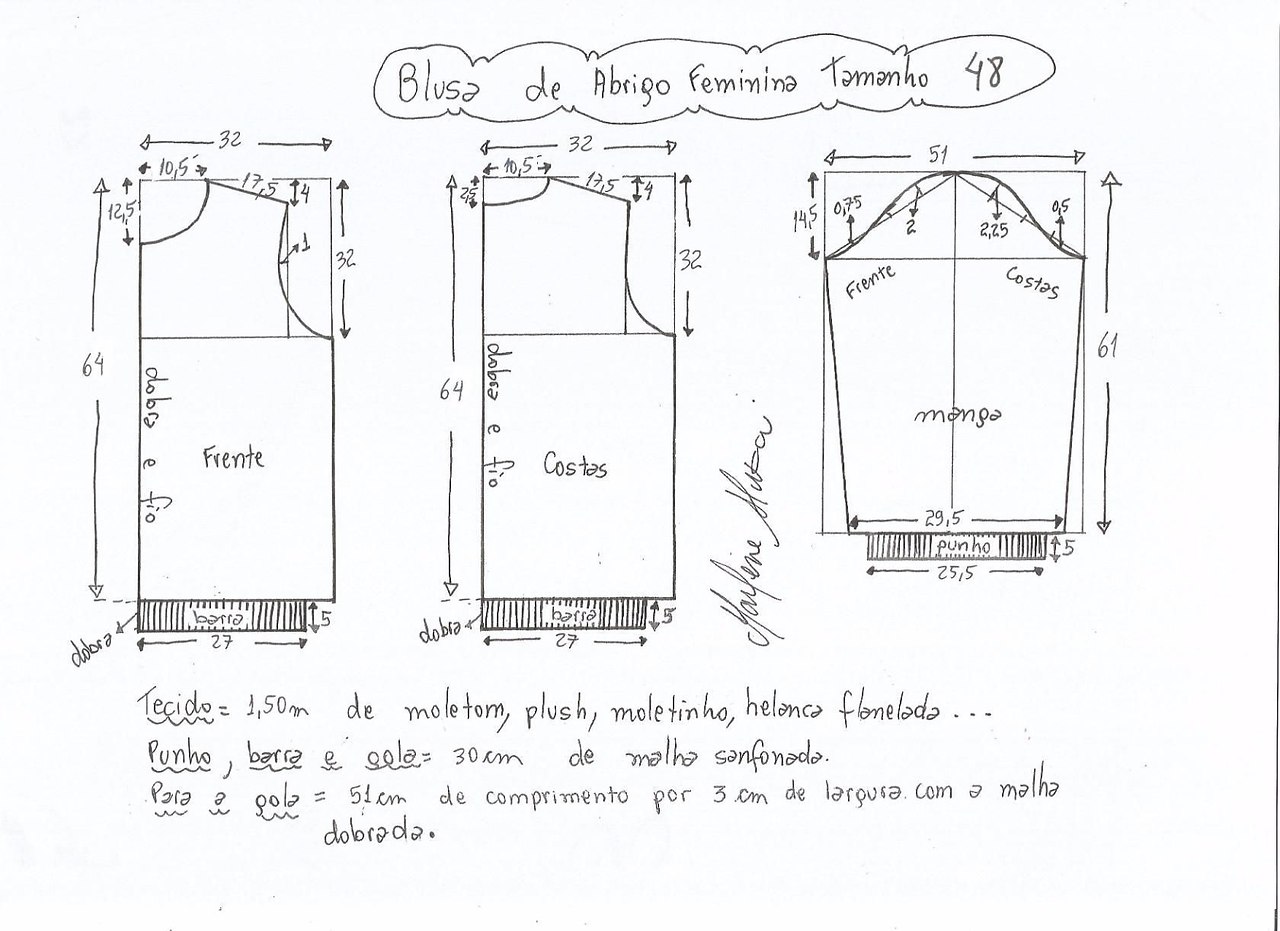 Blusa de Abrigo Feminina Tamanho 48
32
10,5
17,5
4
12,5
1
32
64
dobra e fio
Frente
barra
5
dobra
27
32
10,5
17,5
4
2,5
32
64
dobra e fio
Costas
barra
5
dobra
27
51
14,5
0,75
2
2,25
0,5
Frente
Costas
61
manga
29,5
punho
5
25,5
Tecido = 1,50m de moletom, plush, moletinho, helanca flanelada...
Punho, barra e gola = 30 cm de malha sanfonada.
Para a gola = 51 cm de comprimento por 3 cm de largura com a malha
dobrada.